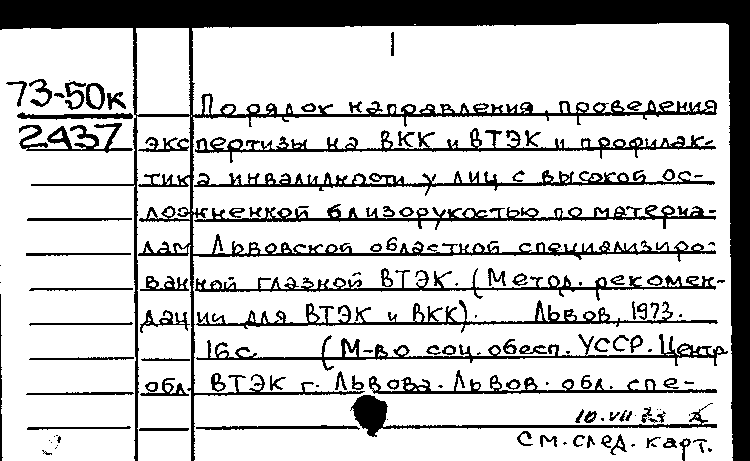 73-50к
2437
Порядок направления, проведения
экспертизы на ВКК и ВТЭК и профилак-
тика инвалидности у лиц с высокой ос-
ложненной близорукостью по материа-
лам Львовской областной специализиро-
ванной глазной ВТЭК. (Метод. рекомен-
дации для ВТЭК и ВКК). Львов, 1973.
16с (М-во соц. обесп. УССР. Центр
обл. ВТЭК г. Львова. Львов. обл. спе-
10.VII 73
См. след. карт.